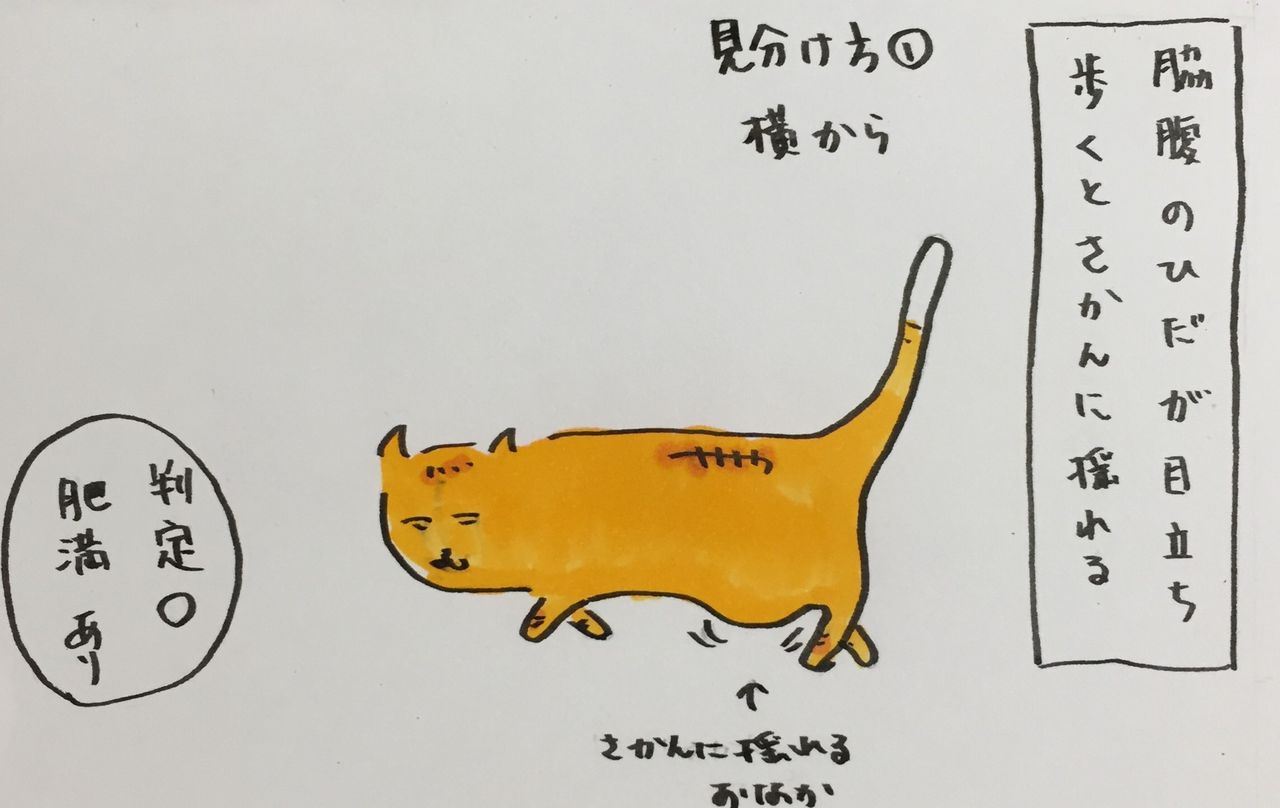 見分け方①
横から
脇腹のひだが目立ち
歩くとさかんに揺れる
判定〇
肥満あり
↑
さかんに揺れる
おなか